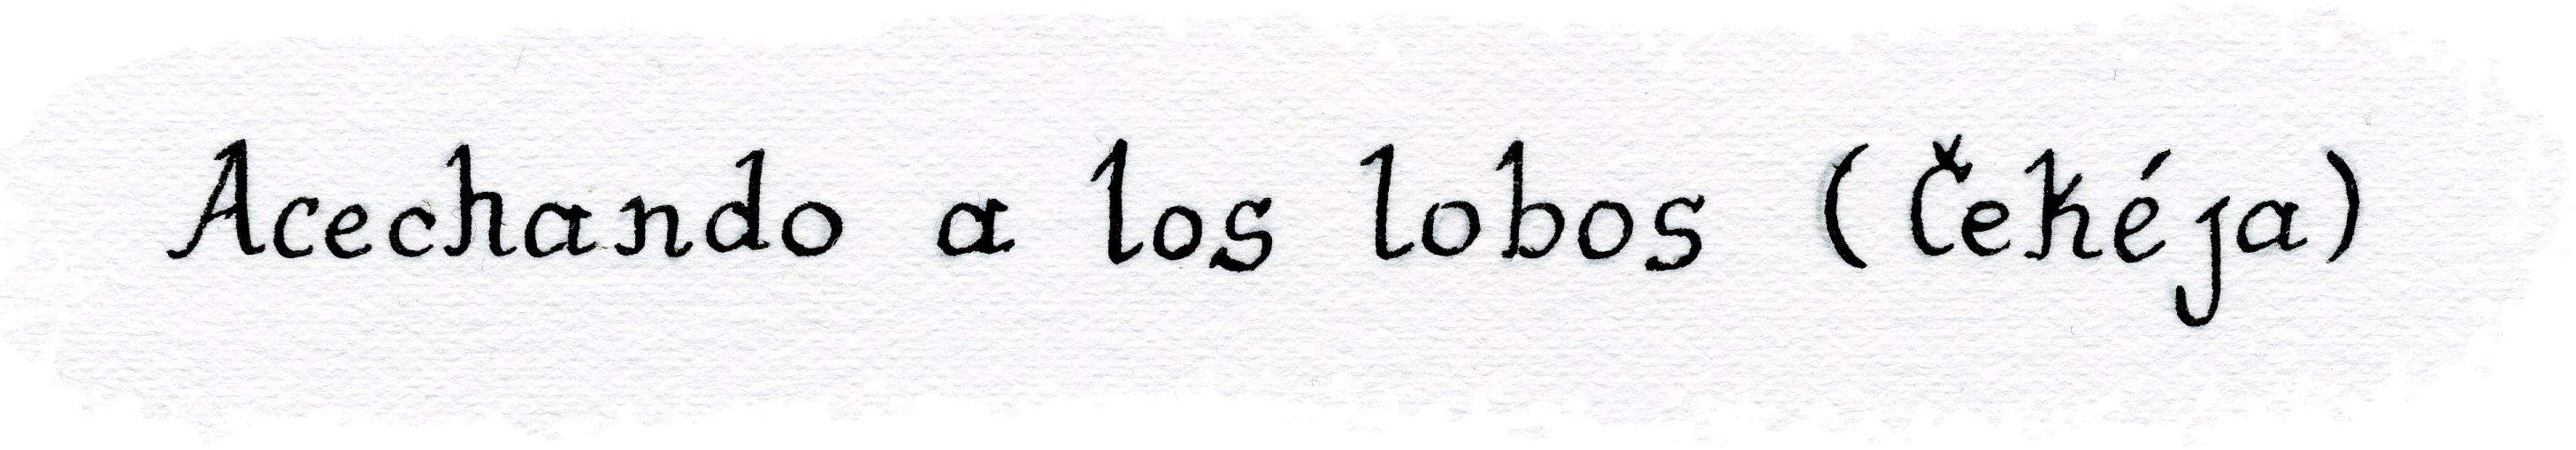 Acechando a los lobos (Čekéja)